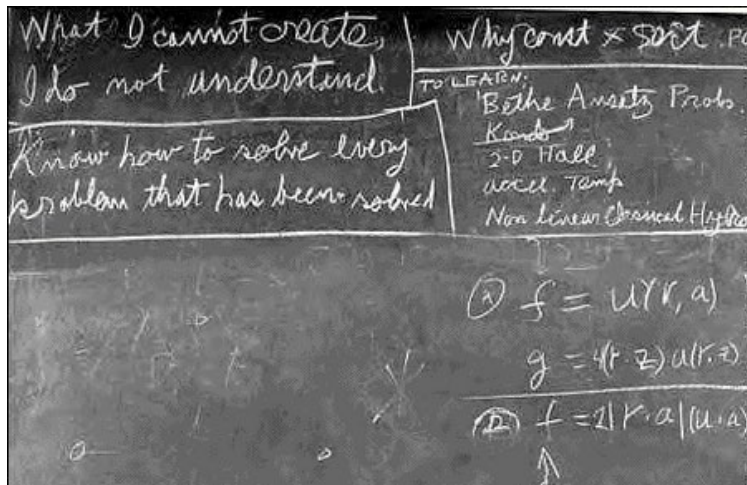 What I cannot create,
I do not understand.
Know how to solve every
problem that has been solved
Why const × sort . PO
TO LEARN:
Bethe Ansatz Probs.
Kondo
2-D Hall
accel. Temp
Non Linear Classical Hydro
Ⓐ f = u(r, a)
g = 4(r·z) u(r·z)
Ⓑ f = 2|r·a|(u·a)